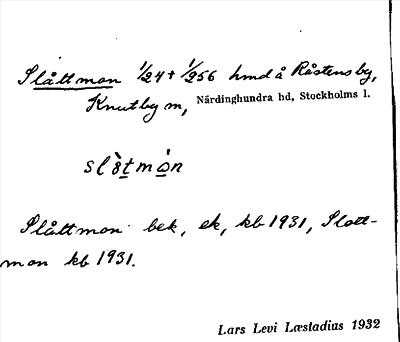 Slåttmon 1/124 + 1/256 hmd å Råstensby,
Knutby sn, Närdinghundra hd, Stockholms l.
slòtmòn
Slåttmon bek, ek, kb 1931, Slott-
mon kb 1931.
Lars Levi Læstadius 1932